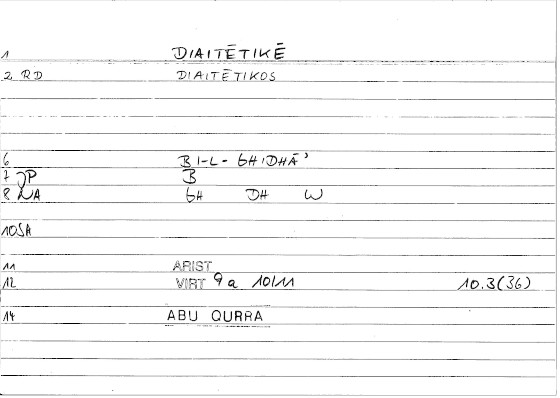 1 DIAITĒTIKĒ
2 RD DIAITĒTIKOS
6 BI-L-GHIDHĀʾ
7 JP B
8 NA GH DH W
10SA
11 ARIST
12 VIRT 9a 10/11 10.3(36)
14 ABU QURRA